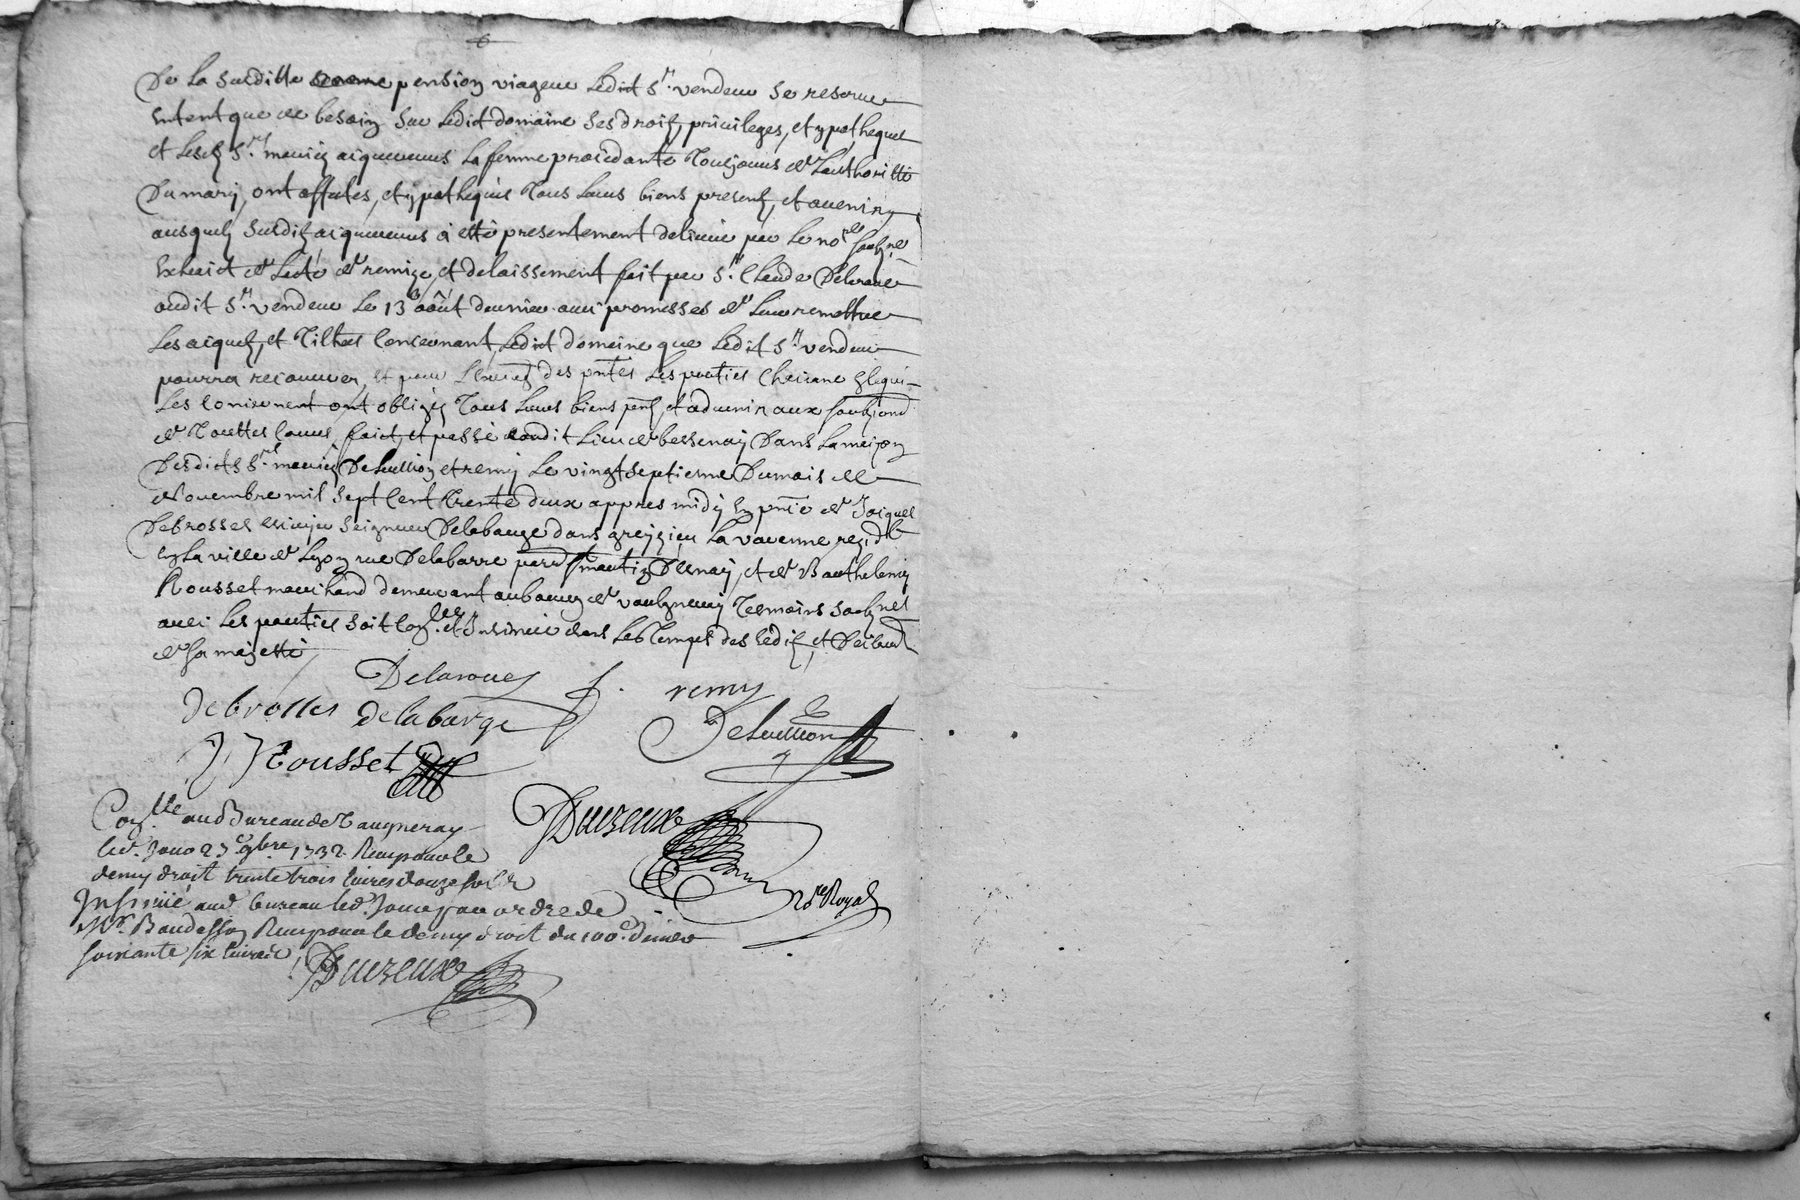 De la susditte pension viagere ledict Sr. vendeur se reserve
entent que de besoin sur ledict domaine ses droitz, privileges, et ypotheques
et lesdz Srs. mariez aquereurs la femme procédante toujours de l'authoritté
du mary, ont affectés, et ypothequés tous leurs biens presentz, et avenirs
ausquelz susditz aquereurs à etté presentement delivré par le nore. soubzne.
extraict de l'acte de remize, et delaissement fait par Sr. Claude Delaroue
audit Sr. vendeur le 13e août dernier avec promesses de leur remettre
les acquetz, et tiltres concernant ledict domeine que ledit Sr. vendeur
pourra recouvrer, et pour des pntes les parties chacune
les concernent ont obligez tous leurs biens pntz, et advenir aux
de touttes cours, faict, et passé audit lieu de bessenay dans la maizon
desdicts Srs. mariez Deluillion et remy le vingtseptieme du mois de
Novembre mil sept cent trente deux appres midy en pnce de Jacques
Debrosses ecuyer seigneur Delabarge dans grezieu la varenne rezidt.
en la ville de Lyon rue Delabarre parr. St martin D'esnay, et de Barthelemy
Rousset marchand demeurant aubourg de vaulgneray temoins soubznes
avec les parties soit conlée. et insinué dans les temps des Editz, et
de sa majesté
Delaroue remy
debrosses delabarge Deluillion
Rousset
Conllé. aud Bureau de Vaugneray Duzeux
led. Jour 27e 9bre. 1732. Reçu pour le
demy droit trente trois livres douze sols
Insinué aud bureau led. Jour par ordre de nore Royal
Mr. Baudesson Reçu pour le demy droit du 100e. denier
soixante six livres
Duzeux